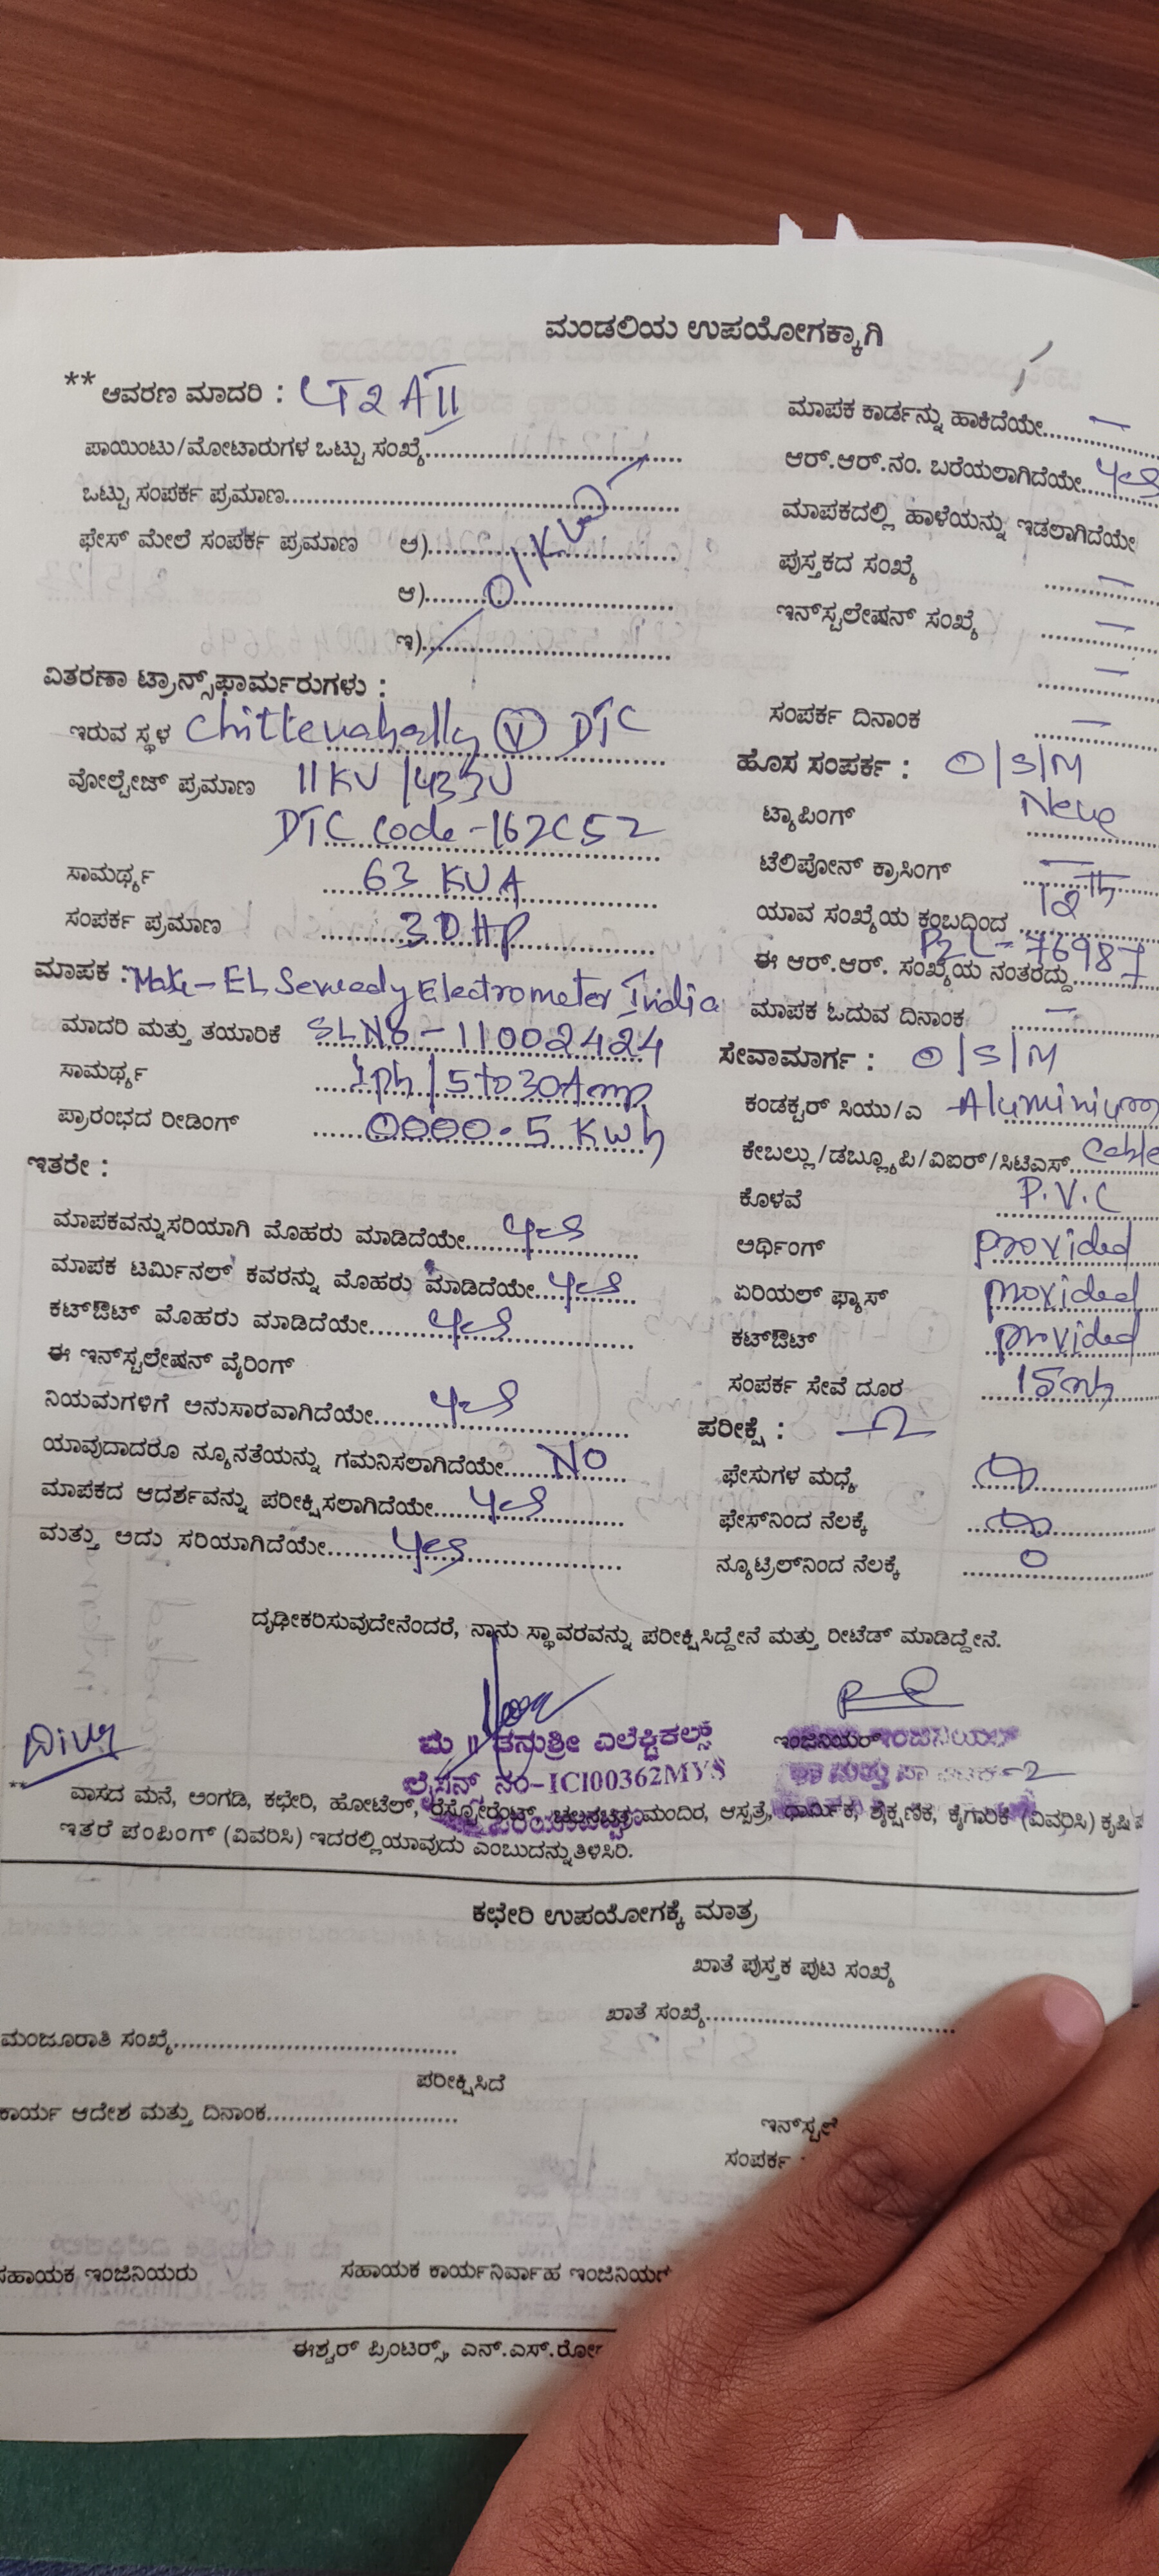 ಮಂಡಲಿಯ ಉಪಯೋಗಕ್ಕಾಗಿ
** ಆವರಣ ಮಾದರಿ : LT2 A II
ಪಾಯಿಂಟು/ಮೋಟಾರುಗಳ ಒಟ್ಟು ಸಂಖ್ಯೆ
ಒಟ್ಟು ಸಂಪರ್ಕ ಪ್ರಮಾಣ
ಫೇಸ್ ಮೇಲೆ ಸಂಪರ್ಕ ಪ್ರಮಾಣ ಅ)
ಆ)
ಇ)
ವಿತರಣಾ ಟ್ರಾನ್ಸ್‌ಫಾರ್ಮರುಗಳು :
ಇರುವ ಸ್ಥಳ Chittenahally (V) DTC
ವೋಲ್ಟೇಜ್ ಪ್ರಮಾಣ 11KV/433V
DTC code-162C52
ಸಾಮರ್ಥ್ಯ 63 KVA
ಸಂಪರ್ಕ ಪ್ರಮಾಣ 30 HP
ಮಾಪಕ : Make-EL Sewedy Electrometer India
ಮಾದರಿ ಮತ್ತು ತಯಾರಿಕೆ SLNo-11002424
ಸಾಮರ್ಥ್ಯ 1ph/5to30Amp
ಪ್ರಾರಂಭದ ರೀಡಿಂಗ್ 0000.5 Kwh
ಇತರೇ :
ಮಾಪಕವನ್ನುಸರಿಯಾಗಿ ಮೊಹರು ಮಾಡಿದೆಯೇ yes
ಮಾಪಕ ಟರ್ಮಿನಲ್ ಕವರನ್ನು ಮೊಹರು ಮಾಡಿದೆಯೇ yes
ಕಟ್‌ಔಟ್ ಮೊಹರು ಮಾಡಿದೆಯೇ yes
ಈ ಇನ್‌ಸ್ಟಲೇಷನ್ ವೈರಿಂಗ್
ನಿಯಮಗಳಿಗೆ ಅನುಸಾರವಾಗಿದೆಯೇ yes
ಯಾವುದಾದರೂ ನ್ಯೂನತೆಯನ್ನು ಗಮನಿಸಲಾಗಿದೆಯೇ No
ಮಾಪಕದ ಆದರ್ಶವನ್ನು ಪರೀಕ್ಷಿಸಲಾಗಿದೆಯೇ yes
ಮತ್ತು ಅದು ಸರಿಯಾಗಿದೆಯೇ yes
ಮಾಪಕ ಕಾರ್ಡನ್ನು ಹಾಕಿದೆಯೇ —
ಆರ್.ಆರ್.ನಂ. ಬರೆಯಲಾಗಿದೆಯೇ yes
ಮಾಪಕದಲ್ಲಿ ಹಾಳೆಯನ್ನು ಇಡಲಾಗಿದೆಯೇ
ಪುಸ್ತಕದ ಸಂಖ್ಯೆ —
ಇನ್‌ಸ್ಟಲೇಷನ್ ಸಂಖ್ಯೆ —
ಸಂಪರ್ಕ ದಿನಾಂಕ —
ಹೊಸ ಸಂಪರ್ಕ : O/S/M
ಟ್ಯಾಪಿಂಗ್ New
ಟೆಲಿಪೋನ್ ಕ್ರಾಸಿಂಗ್ —
ಯಾವ ಸಂಖ್ಯೆಯ ಕಂಬದ್ದಿಂದ 12th
ಈ ಆರ್.ಆರ್. ಸಂಖ್ಯೆಯ ನಂತರದ್ದು PZL-76987
ಮಾಪಕ ಓದುವ ದಿನಾಂಕ —
ಸೇವಾಮಾರ್ಗ : O/S/M
ಕಂಡಕ್ಟರ್ ಸಿಯು/ಎ Aluminium
ಕೇಬಲ್ಲು/ಡಬ್ಲ್ಯೂಪಿ/ವಿಐರ್/ಸಿಟಿಎಸ್ Cable
ಕೊಳವೆ P.V.C
ಅರ್ಥಿಂಗ್ provided
ಏರಿಯಲ್ ಫ್ಯಾಸ್ provided
ಕಟ್‌ಔಟ್ provided
ಸಂಪರ್ಕ ಸೇವೆ ದೂರ
ಪರೀಕ್ಷೆ : Ω
ಫೇಸುಗಳ ಮಧ್ಯೆ
ಫೇಸ್‌ನಿಂದ ನೆಲಕ್ಕೆ
ನ್ಯೂಟ್ರಿಲ್‌ನಿಂದ ನೆಲಕ್ಕೆ 0
ದೃಢೀಕರಿಸುವುದೇನೆಂದರೆ, ನಾನು ಸ್ಥಾವರವನ್ನು ಪರೀಕ್ಷಿಸಿದ್ದೇನೆ ಮತ್ತು ರೀಟೆಡ್ ಮಾಡಿದ್ದೇನೆ.
ಮೆ॥ ತನುಶ್ರೀ ಎಲೆಕ್ಟ್ರಿಕಲ್ಸ್
ಲೈಸೆನ್ಸ್ ನಂ-ICI00362MYS
ಇಂಜಿನಿಯರ್
** ವಾಸದ ಮನೆ, ಅಂಗಡಿ, ಕಛೇರಿ, ಹೋಟೆಲ್, ರೆಸ್ಟೋರೆಂಟ್, ಚಲನಚಿತ್ರಮಂದಿರ, ಆಸ್ಪತ್ರೆ, ಧಾರ್ಮಿಕ, ಶೈಕ್ಷಣಿಕ, ಕೈಗಾರಿಕೆ (ವಿವರಿಸಿ) ಕೃಷಿ
ಇತರೆ ಪಂಪಿಂಗ್ (ವಿವರಿಸಿ) ಇದರಲ್ಲಿ ಯಾವುದು ಎಂಬುದನ್ನು ತಿಳಿಸಿರಿ.
ಕಛೇರಿ ಉಪಯೋಗಕ್ಕೆ ಮಾತ್ರ
ಖಾತೆ ಪುಸ್ತಕ ಪುಟ ಸಂಖ್ಯೆ
ಖಾತೆ ಸಂಖ್ಯೆ
ಮಂಜೂರಾತಿ ಸಂಖ್ಯೆ
ಪರೀಕ್ಷಿಸಿದೆ
ಕಾರ್ಯ ಆದೇಶ ಮತ್ತು ದಿನಾಂಕ
ಸಂಪರ್ಕ
ಸಹಾಯಕ ಇಂಜಿನಿಯರು
ಸಹಾಯಕ ಕಾರ್ಯನಿರ್ವಾಹ ಇಂಜಿನಿಯರ್
ಈಶ್ವರ್ ಪ್ರಿಂಟರ್ಸ್, ಎನ್.ಎಸ್.ರೋ